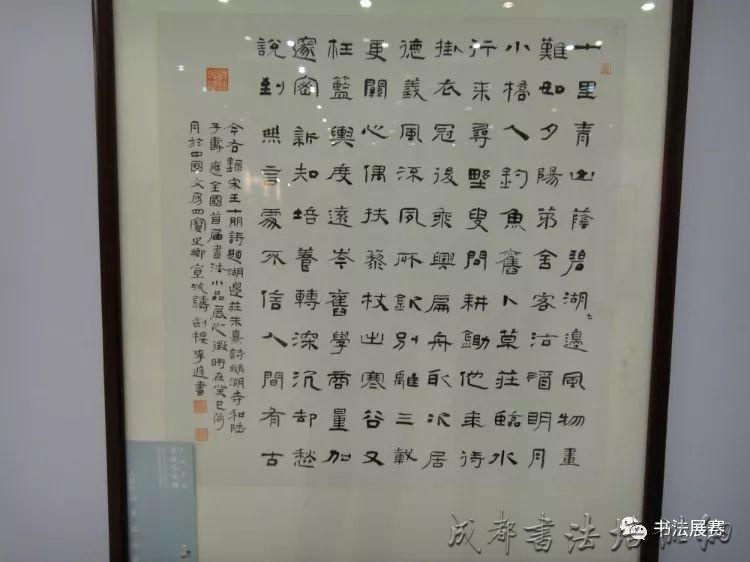 十里青山蔭碧湖〻邊風物畫
難如夕陽茅舍客沽酒明月
小橋人釣魚舊卜草莊臨水
行来尋野叟問耕鋤他年待
掛衣冠後乘興扁舟取次居
德義風流夙所欽別離三載
更關心偶扶藜杖出寒谷又
枉籃輿度遠岑舊學商量加
邃密新知培養轉深沉却愁
說到無言處不信人間有古
今右錄宋王十朋詩題湖邊莊朱熹詩鵝湖寺和陸
子壽應全國首届書法小品展之徵時在癸巳荷
月於中國文房四寶之鄉宣城鑄劍樓李進書
成都书法培
书法展赛